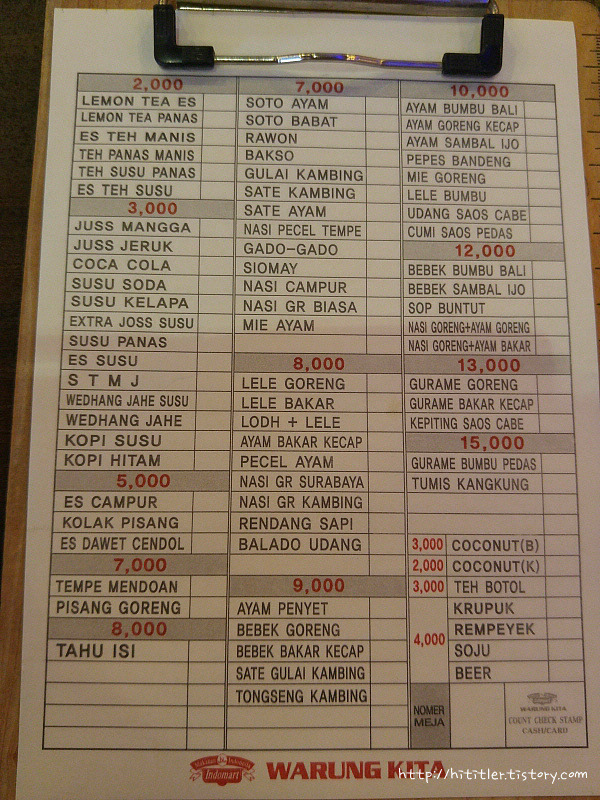 2,000
LEMON TEA ES
LEMON TEA PANAS
ES TEH MANIS
TEH PANAS MANIS
TEH SUSU PANAS
ES TEH SUSU
3,000
JUSS MANGGA
JUSS JERUK
COCA COLA
SUSU SODA
SUSU KELAPA
EXTRA JOSS SUSU
SUSU PANAS
ES SUSU
S T M J
WEDHANG JAHE SUSU
WEDHANG JAHE
KOPI SUSU
KOPI HITAM
5,000
ES CAMPUR
KOLAK PISANG
ES DAWET CENDOL
7,000
TEMPE MENDOAN
PISANG GORENG
8,000
TAHU ISI
7,000
SOTO AYAM
SOTO BABAT
RAWON
BAKSO
GULAI KAMBING
SATE KAMBING
SATE AYAM
NASI PECEL TEMPE
GADO-GADO
SIOMAY
NASI CAMPUR
NASI GR BIASA
MIE AYAM
8,000
LELE GORENG
LELE BAKAR
LODH + LELE
AYAM BAKAR KECAP
PECEL AYAM
NASI GR SURABAYA
NASI GR KAMBING
RENDANG SAPI
BALADO UDANG
9,000
AYAM PENYET
BEBEK GORENG
BEBEK BAKAR KECAP
SATE GULAI KAMBING
TONGSENG KAMBING
10,000
AYAM BUMBU BALI
AYAM GORENG KECAP
AYAM SAMBAL IJO
PEPES BANDENG
MIE GORENG
LELE BUMBU
UDANG SAOS CABE
CUMI SAOS PEDAS
12,000
BEBEK BUMBU BALI
BEBEK SAMBAL IJO
SOP BUNTUT
NASI GORENG+AYAM GORENG
NASI GORENG+AYAM BAKAR
13,000
GURAME GORENG
GURAME BAKAR KECAP
KEPITING SAOS CABE
15,000
GURAME BUMBU PEDAS
TUMIS KANGKUNG
3,000 COCONUT(B)
2,000 COCONUT(K)
3,000 TEH BOTOL
4,000
KRUPUK
REMPEYEK
SOJU
BEER
NOMER
MEJA
WARUNG KITA
COUNT CHECK STAMP
CASH/CARD
Indomart
WARUNG KITA
http://hititler.tistory.com